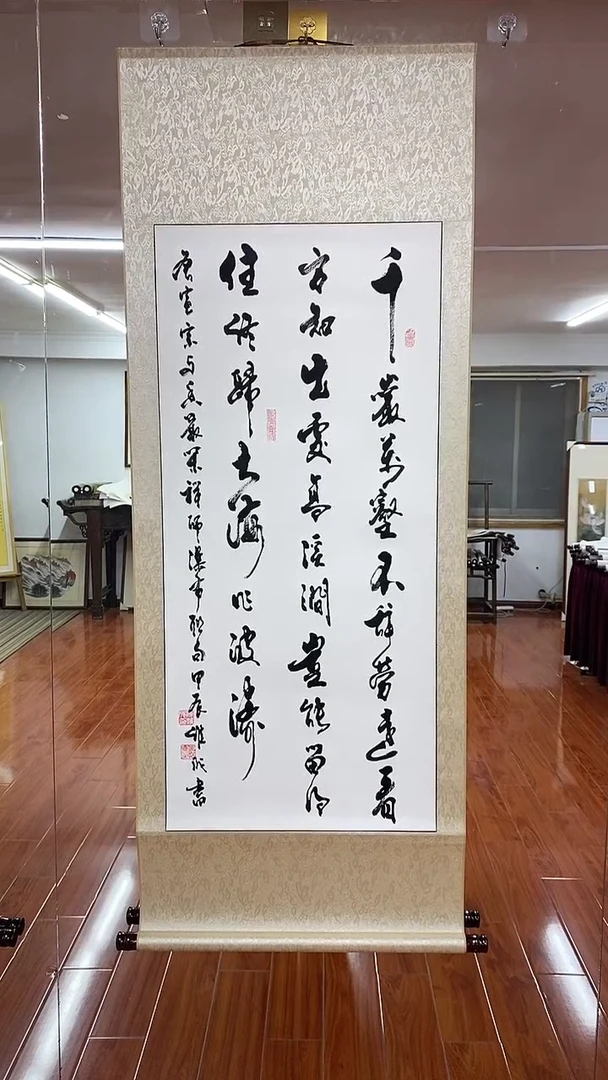 千巖萬壑不辞勞遠看
方知出處高溪澗豈能留得
住終歸大海作波濤
唐宣宗与香嚴閑禅师瀑布联句甲辰成書